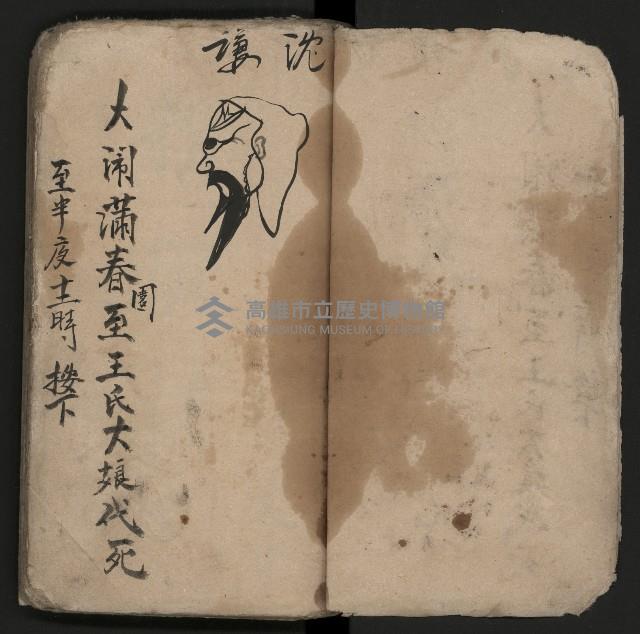 沈
讓
大鬧滿春園至王氏大娘代死
至半夜十二時 接下
高雄市立歷史博物館
KAOHSIUNG MUSEUM OF HISTORY